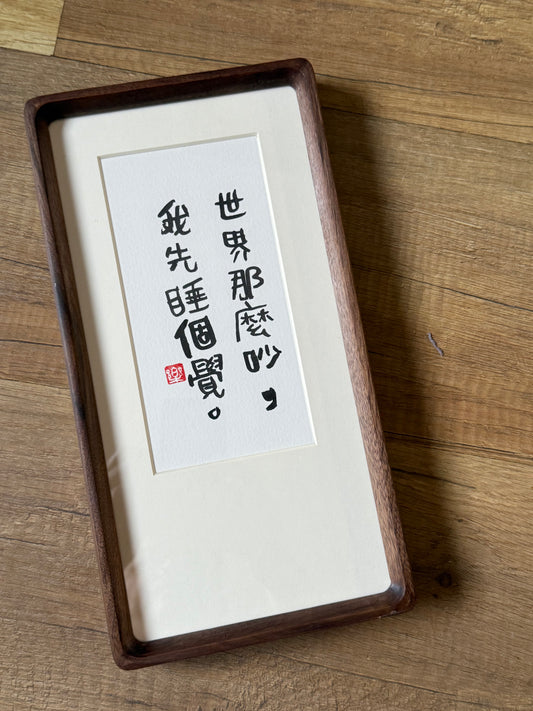 世界那麼吵，
我先睡個覺。